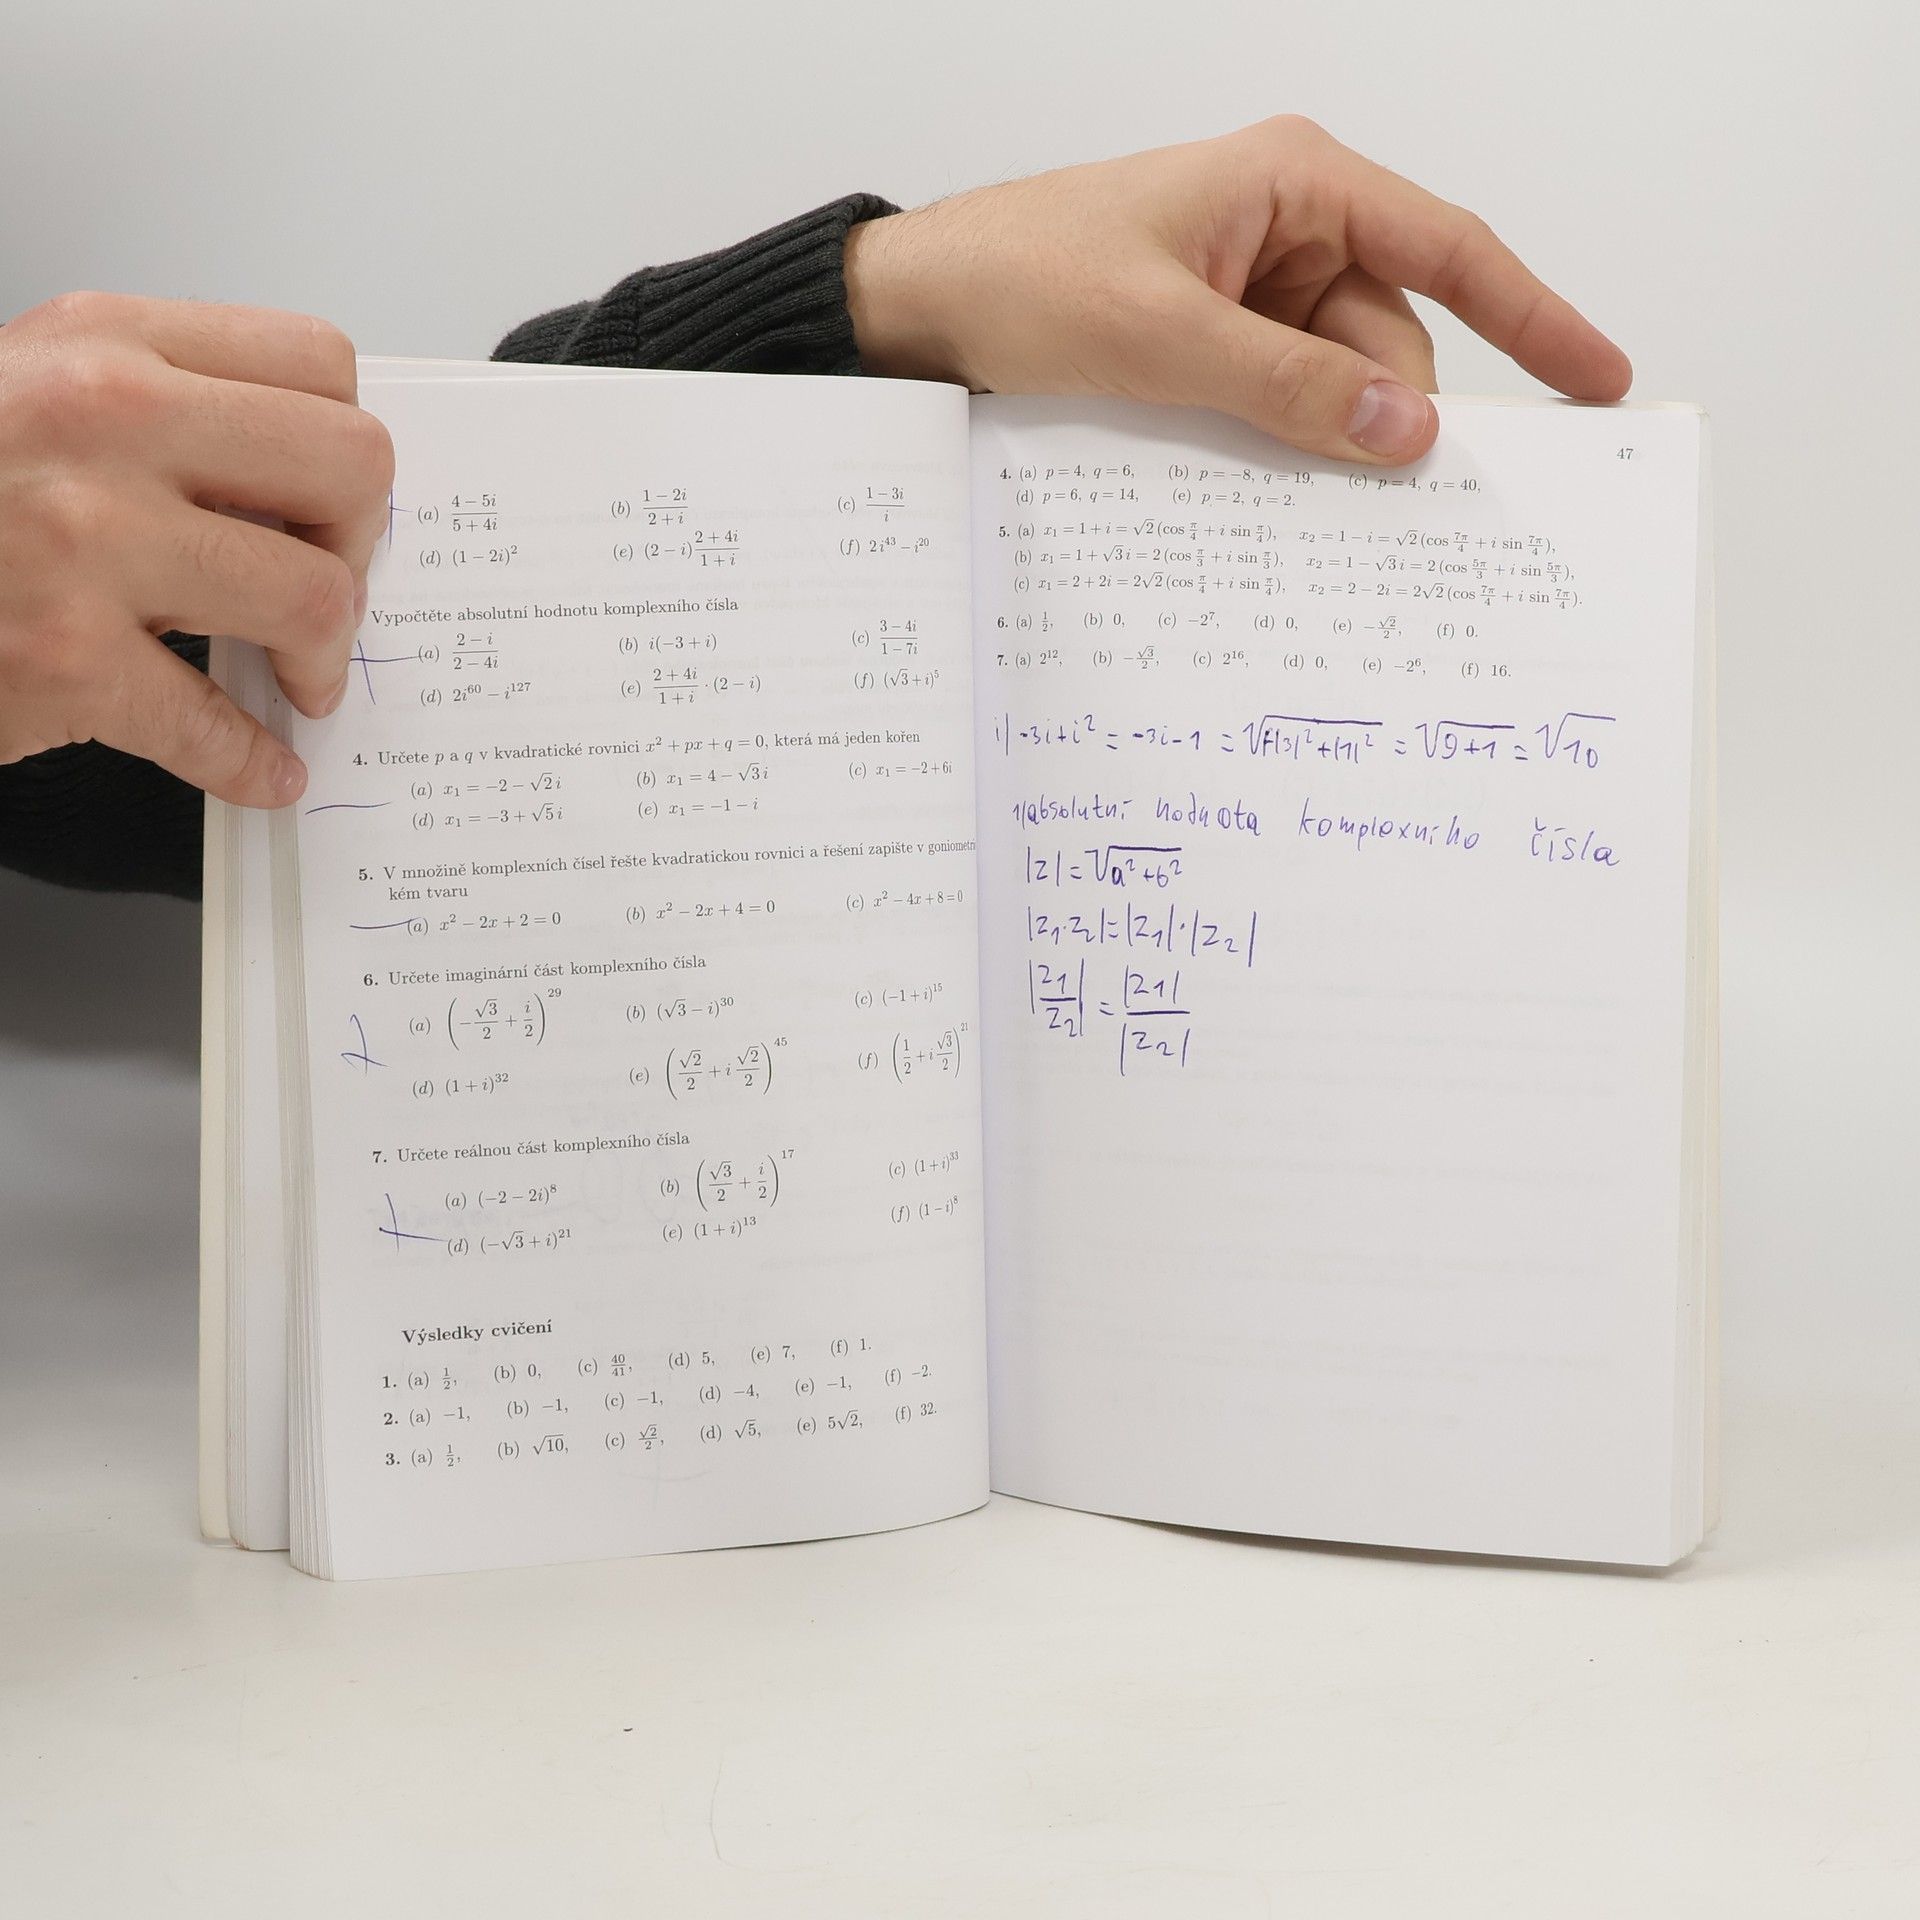 (a) (4 − 5i)/(5 + 4i) (b) (1 − 2i)/(2 + i) (c) (1 − 3i)/i
(d) (1 − 2i)² (e) (2 − i)(2 + 4i)/(1 + i) (f) 2i⁴³ − i²⁰
Vypočtěte absolutní hodnotu komplexního čísla
(a) (2 − i)/(2 − 4i) (b) i(−3 + i) (c) (3 − 4i)/(1 − 7i)
(d) 2i⁶⁰ − i¹²⁷ (e) (2 + 4i)/(1 + i) · (2 − i) (f) (√3 + i)⁵
4. Určete p a q v kvadratické rovnici x² + px + q = 0, která má jeden kořen
(a) x₁ = −2 − √2 i (b) x₁ = 4 − √3 i (c) x₁ = −2 + 6i
(d) x₁ = −3 + √5 i (e) x₁ = −1 − i
5. V množině komplexních čísel řešte kvadratickou rovnici a řešení zapište v goniometri
kém tvaru
(a) x² − 2x + 2 = 0 (b) x² − 2x + 4 = 0 (c) x² − 4x + 8 = 0
6. Určete imaginární část komplexního čísla
(a) (−√3/2 + i/2)²⁹ (b) (√3 − i)³⁰ (c) (−1 + i)¹⁵
(d) (1 + i)³² (e) (√2/2 + i √2/2)⁴⁵ (f) (1/2 + i √3/2)²¹
7. Určete reálnou část komplexního čísla
(a) (−2 − 2i)⁸ (b) (√3/2 + i/2)¹⁷ (c) (1 + i)³³
(d) (−√3 + i)²¹ (e) (1 + i)¹³ (f) (1 − i)⁸
Výsledky cvičení
1. (a) 1/2, (b) 0, (c) 40/41, (d) 5, (e) 7, (f) 1.
2. (a) −1, (b) −1, (c) −1, (d) −4, (e) −1, (f) −2.
3. (a) 1/2, (b) √10, (c) √2/2, (d) √5, (e) 5√2, (f) 32.
47
4. (a) p = 4, q = 6, (b) p = −8, q = 19, (c) p = 4, q = 40,
(d) p = 6, q = 14, (e) p = 2, q = 2.
5. (a) x₁ = 1 + i = √2 (cos π/4 + i sin π/4), x₂ = 1 − i = √2 (cos 7π/4 + i sin 7π/4),
(b) x₁ = 1 + √3 i = 2 (cos π/3 + i sin π/3), x₂ = 1 − √3 i = 2 (cos 5π/3 + i sin 5π/3),
(c) x₁ = 2 + 2i = 2√2 (cos π/4 + i sin π/4), x₂ = 2 − 2i = 2√2 (cos 7π/4 + i sin 7π/4).
6. (a) 1/2, (b) 0, (c) −2⁷, (d) 0, (e) −√2/2, (f) 0.
7. (a) 2¹², (b) −√3/2, (c) 2¹⁶, (d) 0, (e) −2⁶, (f) 16.
-3i+i² = -3i-1 = = √9+1 = √10
absolutní hodnota komplexního čísla
|z| = √a²+b²
|z₁·z₂| = |z₁|·|z₂|
|z₁/z₂| = |z₁|/|z₂|